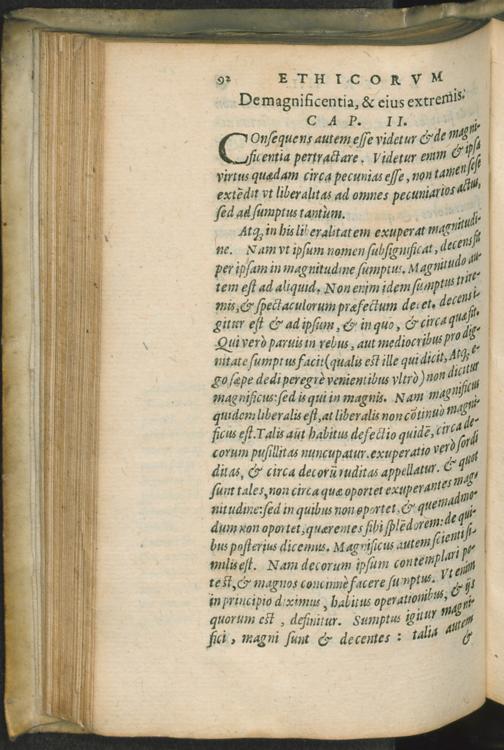 92 ETHICORVM
De magnificentia, & eius extremis.
CAP. II.
COnsequens autem esse videtur & de magni-
ficentia pertractare. Videtur enim & ipsa
virtus quædam circa pecunias esse, non tamen sese
extēdit vt liberalitas ad omnes pecuniarios actus,
sed ad sumptus tantùm.
Atq; in his liberalitatem exuperat magnitudi-
ne. Nam vt ipsum nomen subsignificat, decens sit
per ipsam in magnitudine sumptus. Magnitudo au-
tem est ad aliquid. Non enim idem sumptus trire-
mis, & spectaculorum præfectum decet. decens i-
gitur est & ad ipsum, & in quo, & circa quæ sit.
Qui verò paruis in rebus, aut mediocribus pro dig-
nitate sumptus facit (qualis est ille qui dicit, Atq; e-
go sæpe dedi peregrè venientibus vltrò) non dicitur
magnificus: sed is qui in magnis. Nam magnificus
quidem liberalis est, at liberalis non cōtinuò magni-
ficus est. Talis aūt habitus defectio quidē, circa de-
corum pusillitas nuncupatur. exuperatio verò sordi
ditas, & circa decorū ruditas appellatur. & quot
sunt tales, non circa quæ oportet exuperantes mag-
nitudine: sed in quibus non oportet, & quemadmo-
dum non oportet, quærentes sibi splēdorem: de qui-
bus posterius dicemus. Magnificus autem scienti si-
milis est. Nam decorum ipsum contemplari po-
test, & magnos concinnè facere sumptus. Vt enim
in principio diximus, habitus operationibus, & ijs
quorum est, definitur. Sumptus igitur magni-
fici, magni sunt & decentes: talia autem
&